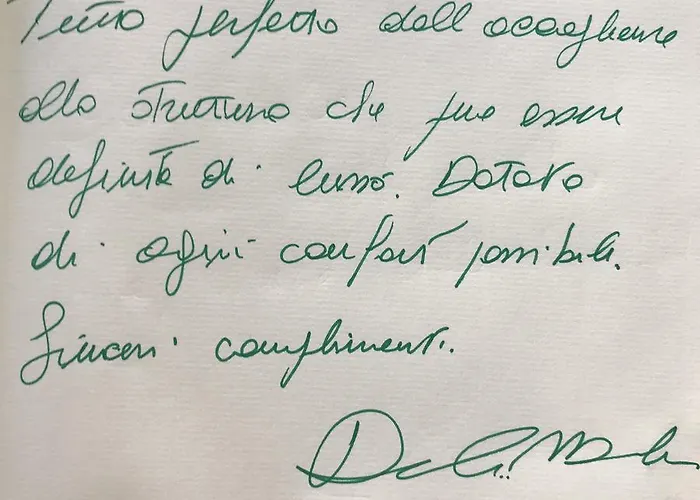 Tutto perfetto dall'accoglienza
alla struttura che può essere
definita di lusso. Dotata
di ogni confort possibile.
Sinceri complimenti.